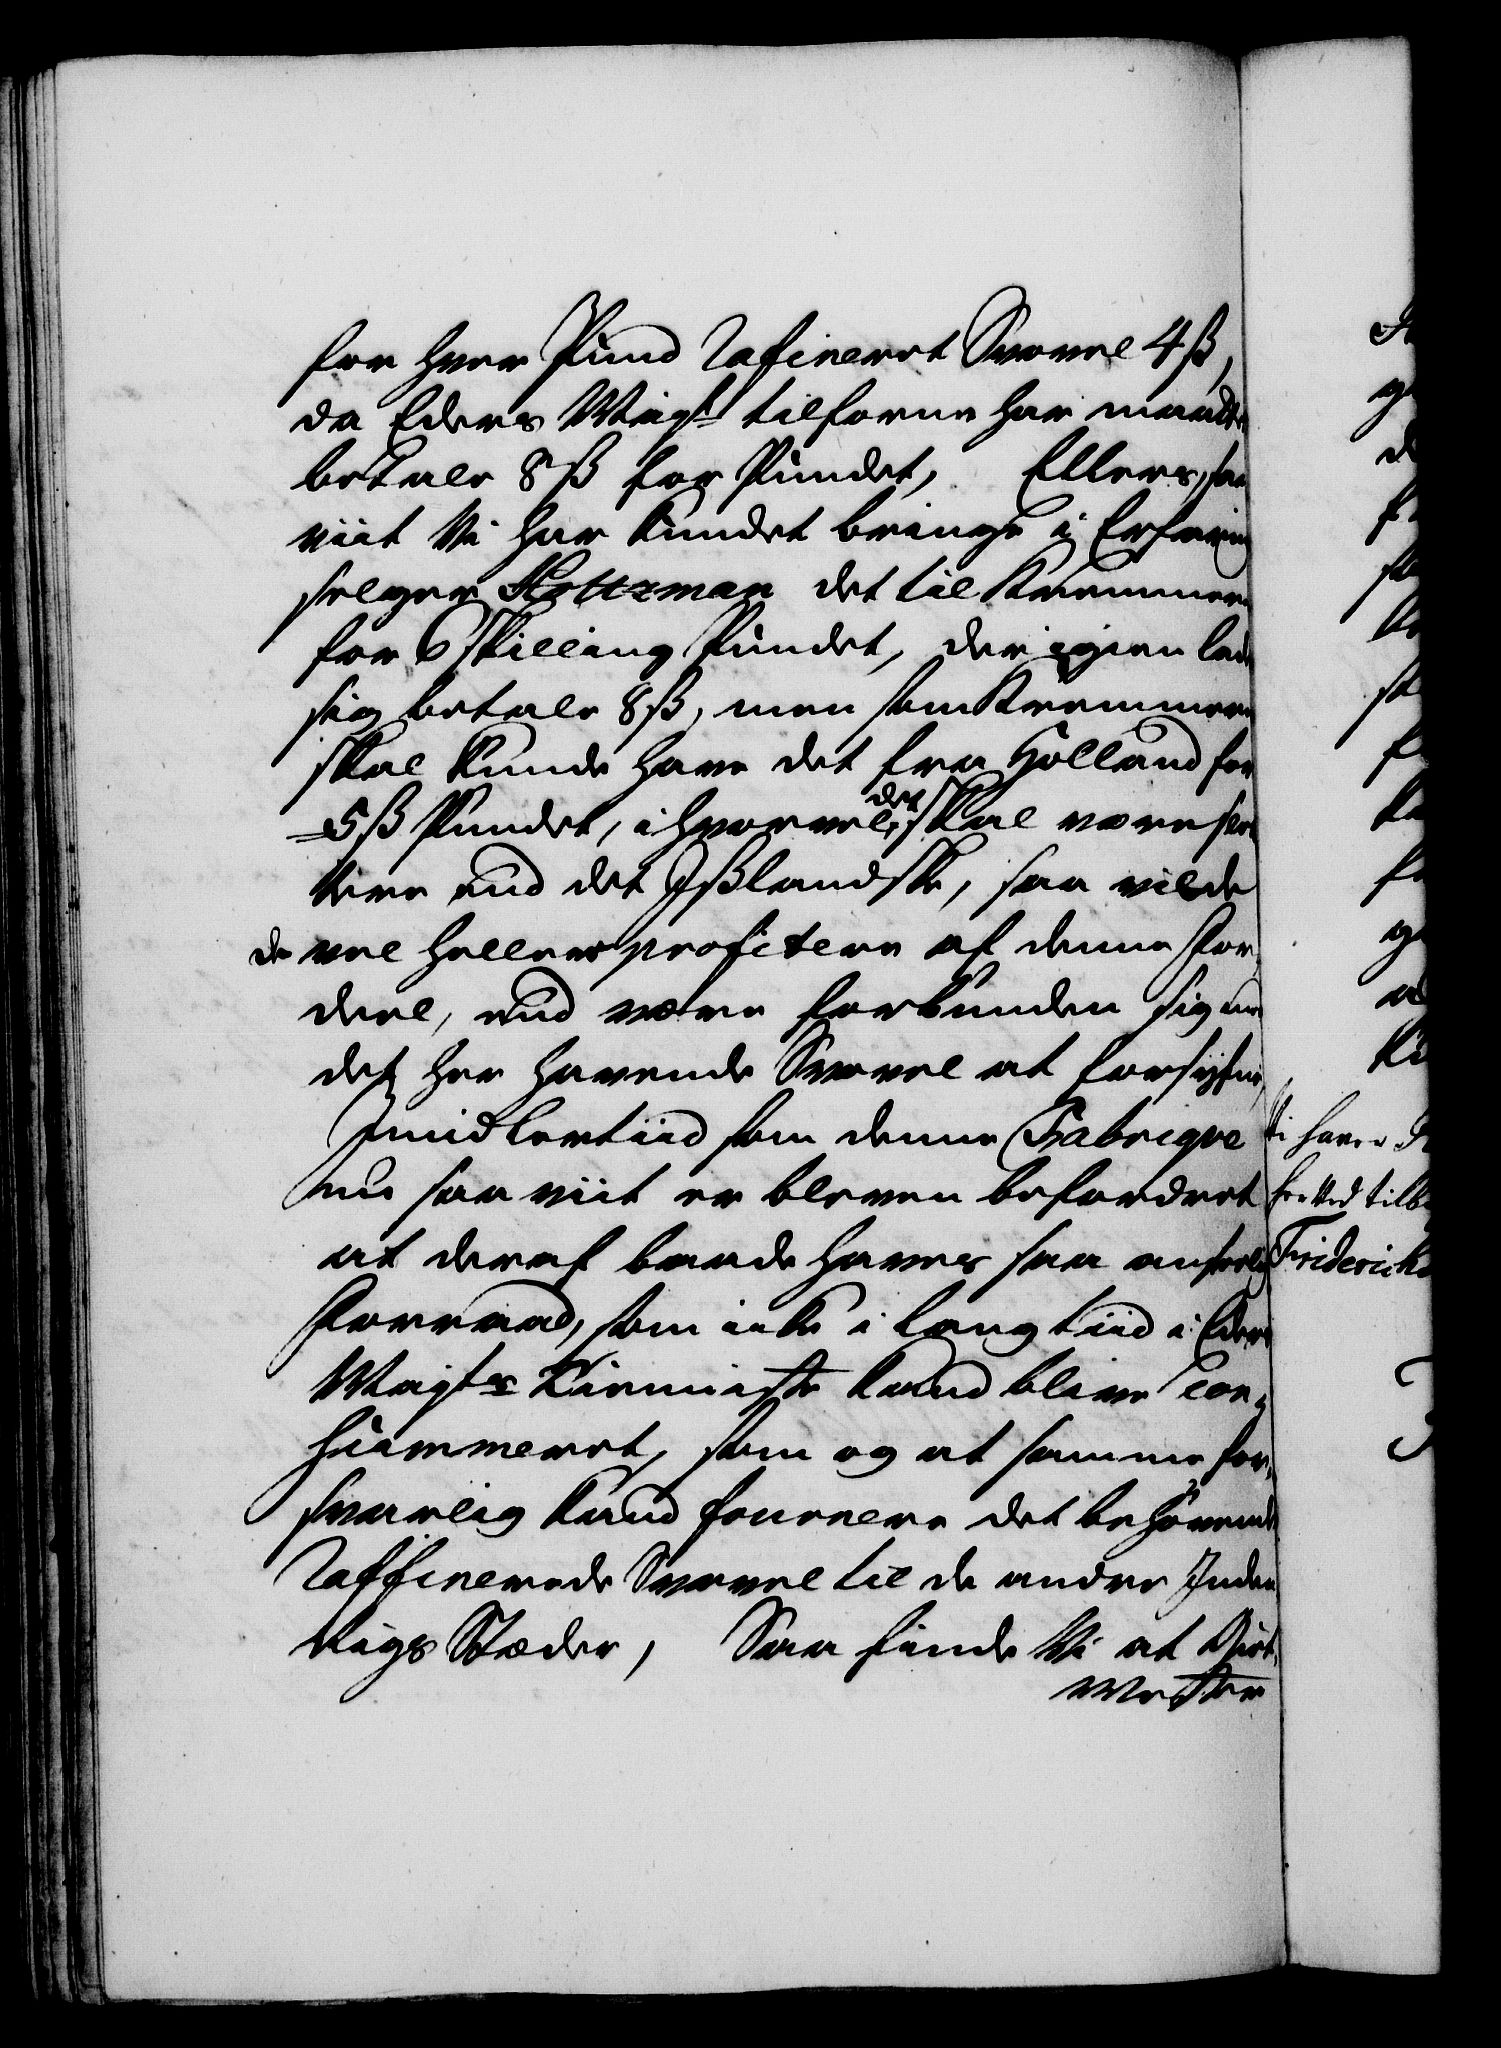 for hver Pund Rafineret Svovel 4 ß,
da Eders Mayt tilforne har maatte
betale 8 ß for Pundet, Ellers, saa
viit Vi har kundet bringe i Erfaring
selger Holtzman det til Kremmere
for 6 Skilling Pundet, der igien lade
sig betale 8 ß, men som Kremmere
skal kunde have det fra Holland for
5 ß Pundet, ihvorvel det skal være slet
tere end det Ißlandske, saa vilde
de vel heller profitere af denne For,
deel, end være forbunden sig med
det her havende Svovel at forsyne,
Imidlertiid som denne Fabriqve
nu saa viit er bleven befordret
at deraf baade haves saa anseelig
Forraad, som icke i lang tiid i Eders
Mayts Riger kand blive Con,
sumeret, som og at samme for,
svarlig kand fournere det behövende
Raffinerede Svovel til de andre Inden
Rigs Stæder, Saa finde Vi at Birt,
Vi have
tilb
Friderich